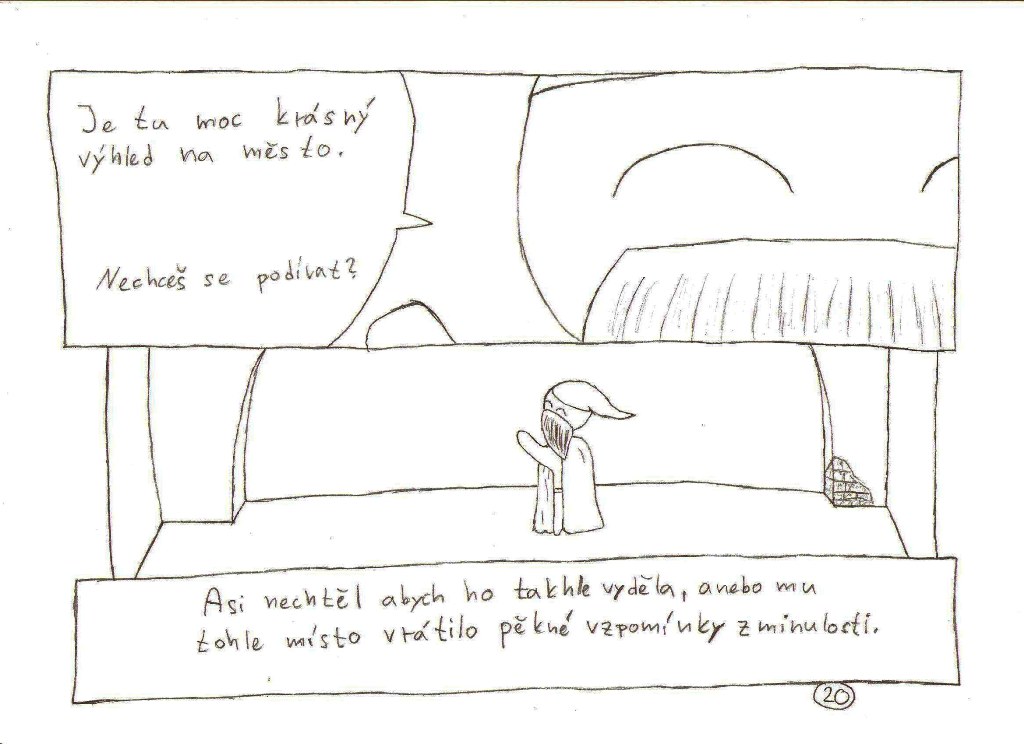 Je tu moc krásný
výhled na město.
Nechceš se podívat?
Asi nechtěl abych ho takhle vyděla, anebo mu
tohle místo vrátilo pěkné vzpomínky z minulosti.
20